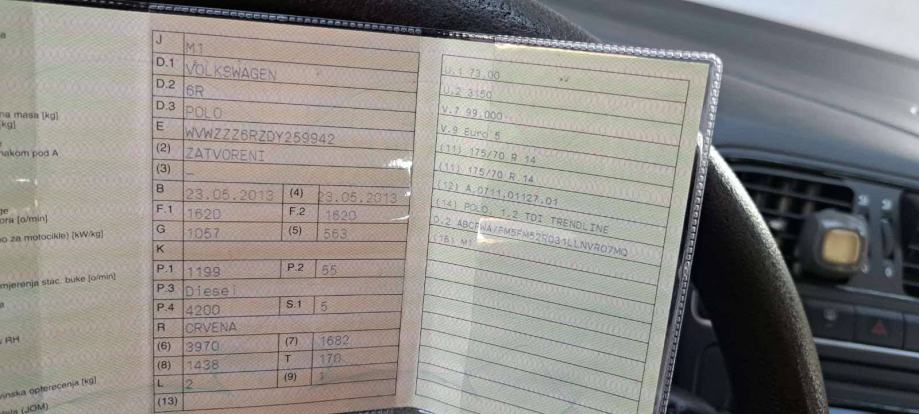 na masa [kg]
[kg]
nakom pod A
ora [o/min]
o za motocikle) [kW/kg]
mjerenja stac. buke [o/min]
RH
vinska opterećenja [kg]
(JOM)
J M1
D.1 VOLKSWAGEN
D.2 6R
D.3 POLO
E WVWZZZ6RZDY259942
(2) ZATVORENI
(3) –
B 23.05.2013 (4) 23.05.2013
F.1 1620 F.2 1620
G 1057 (5) 563
K
P.1 1199 P.2 55
P.3 Diesel
P.4 4200 S.1 5
R CRVENA
(6) 3970 (7) 1682
(8) 1438 T 170
L 2 (9) 1
(13)
U.1 73.00
U.2 3150
V.7 99.000
V.9 Euro 5
(11) 175/70 R 14
(11) 175/70 R 14
(12) A.0711.01127.01
(14) POLO 1.2 TDI TRENDLINE
D.2
(16) M1